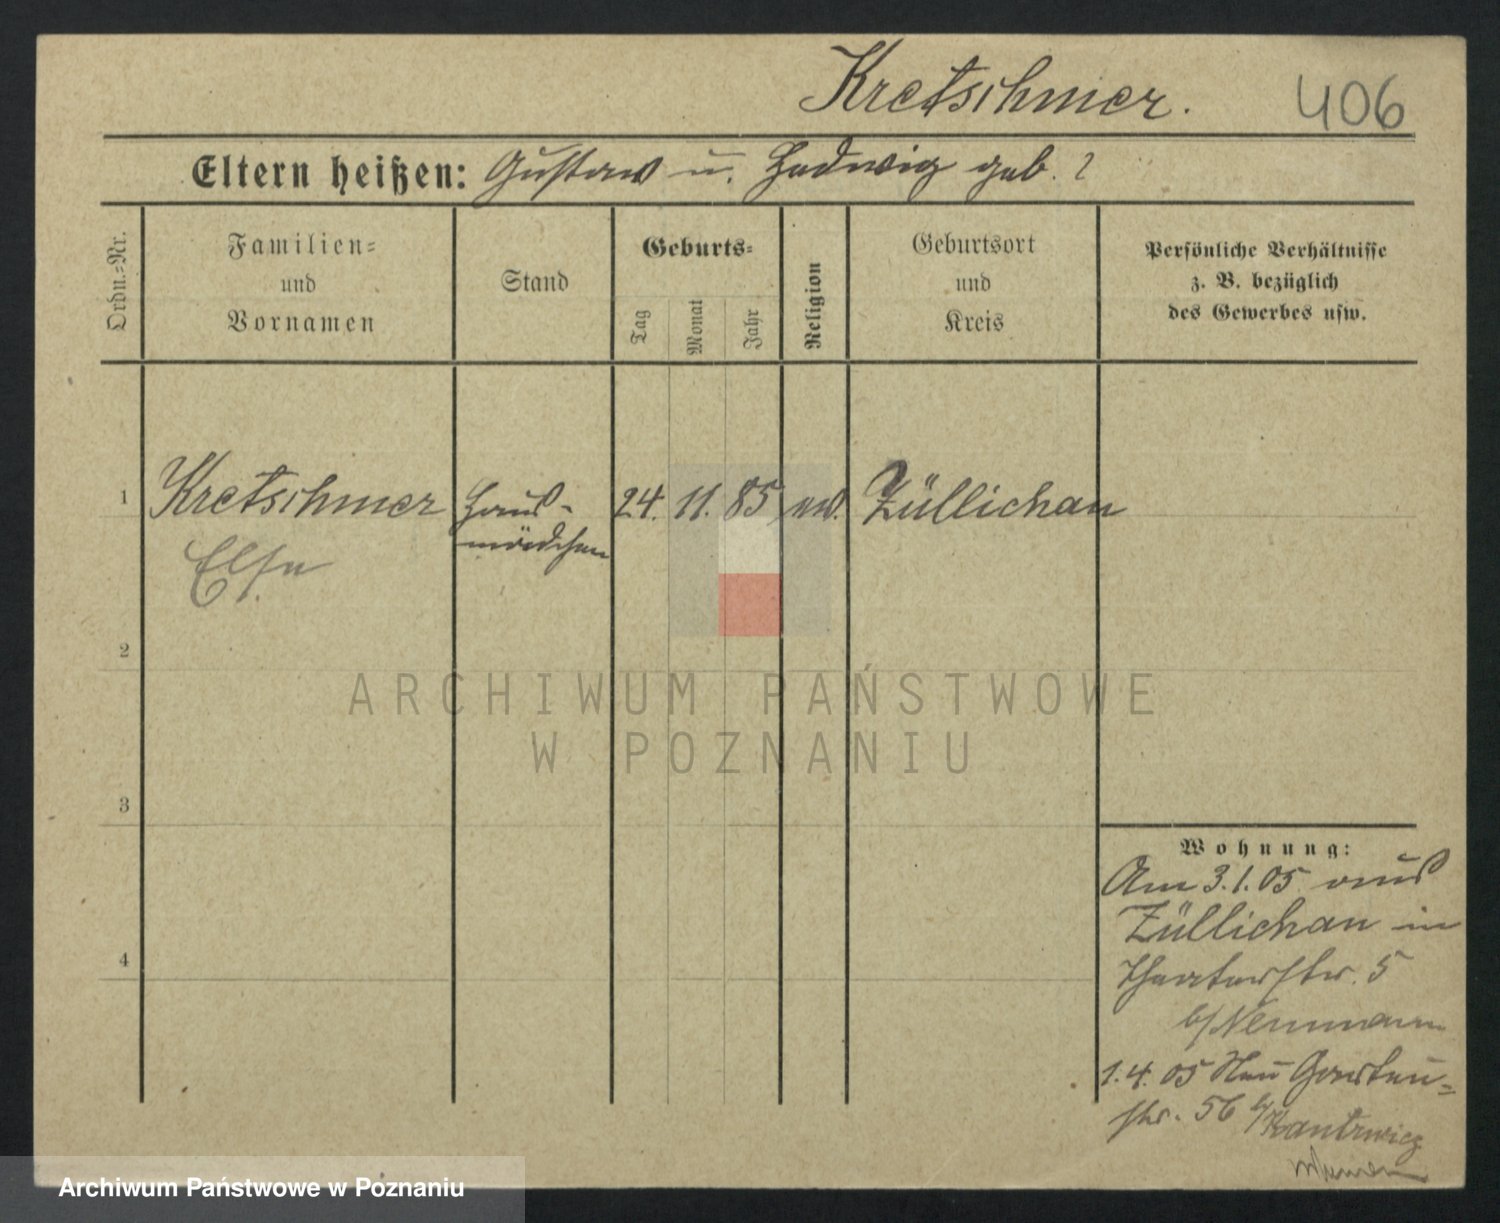 Kretschmer. 406
Eltern heißen: Gustav u. Hedwig geb. ?
Ordn.=Nr.
Familien=
und
Vornamen
Stand
Geburts=
Tag
Monat
Jahr
Religion
Geburtsort
und
Kreis
Persönliche Verhältnisse
z. B. bezüglich
des Gewerbes usw.
1 Kretschmer Haus- 24. 11. 85 ev. Züllichau
Else mädchen
2
3
4
Wohnung:
Am 3.1.05 aus
Züllichau in
Theaterstr. 5
b/Neumann
1.4.05 Neu Garten=
str. 56 b/
ARCHIWUM PAŃSTWOWE
W POZNANIU
Archiwum Państwowe w Poznaniu